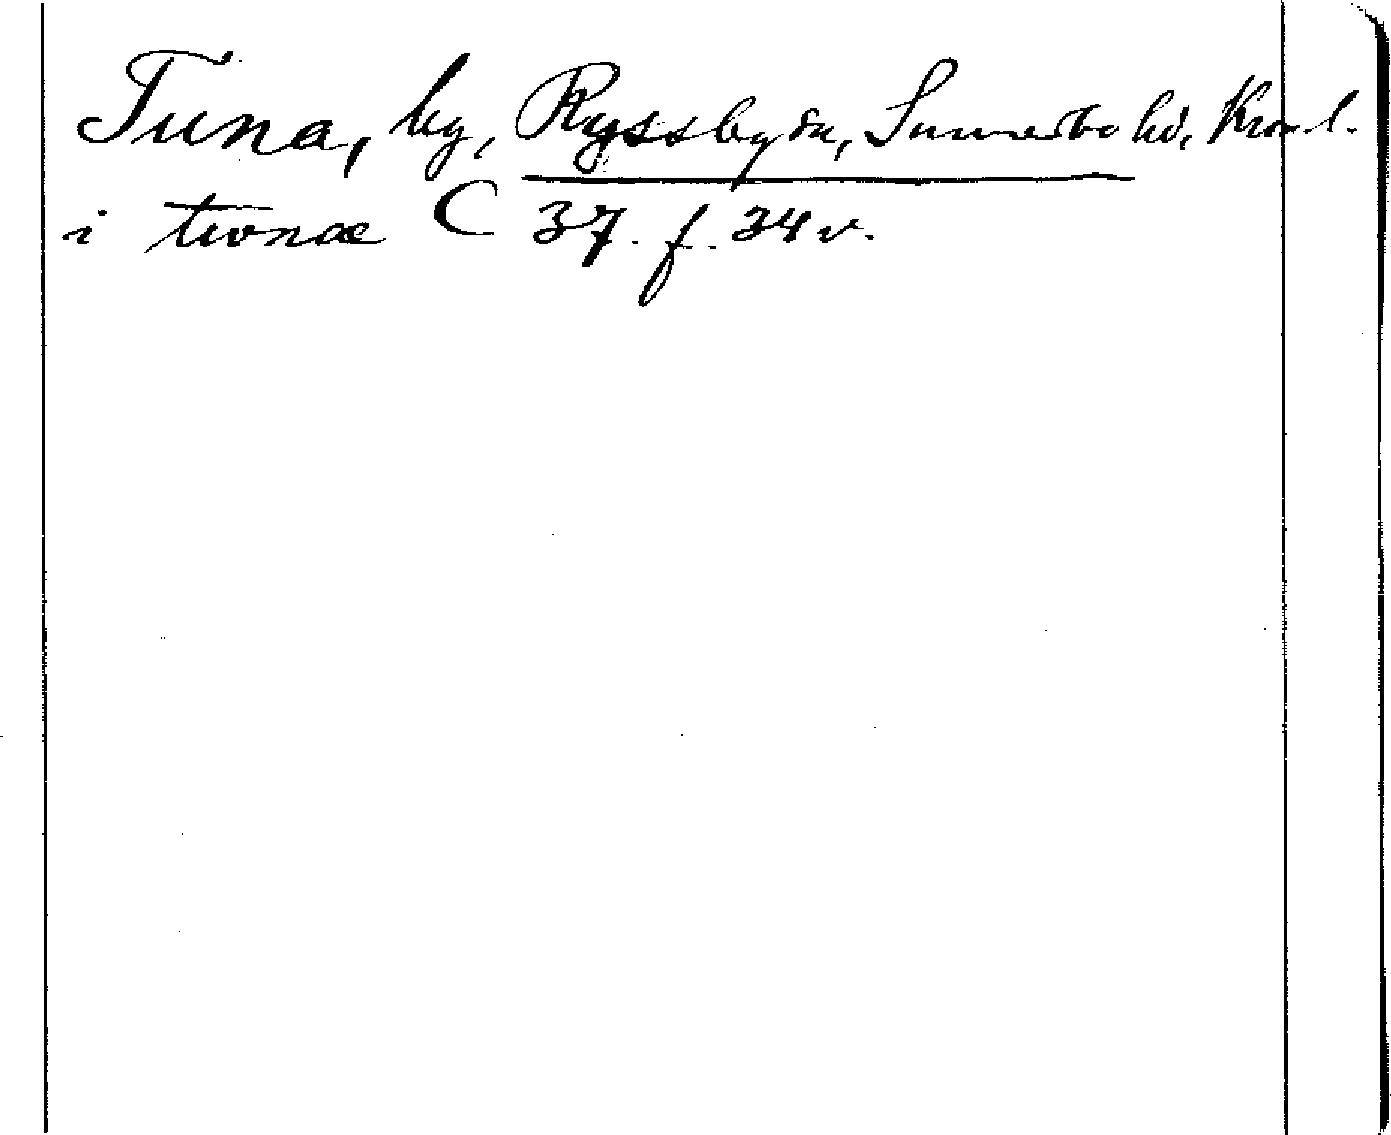 Tuna, by, Ryssby sn, Sunnerbo hd, Kron. l.
i twnæ C 37. f. 34 v.